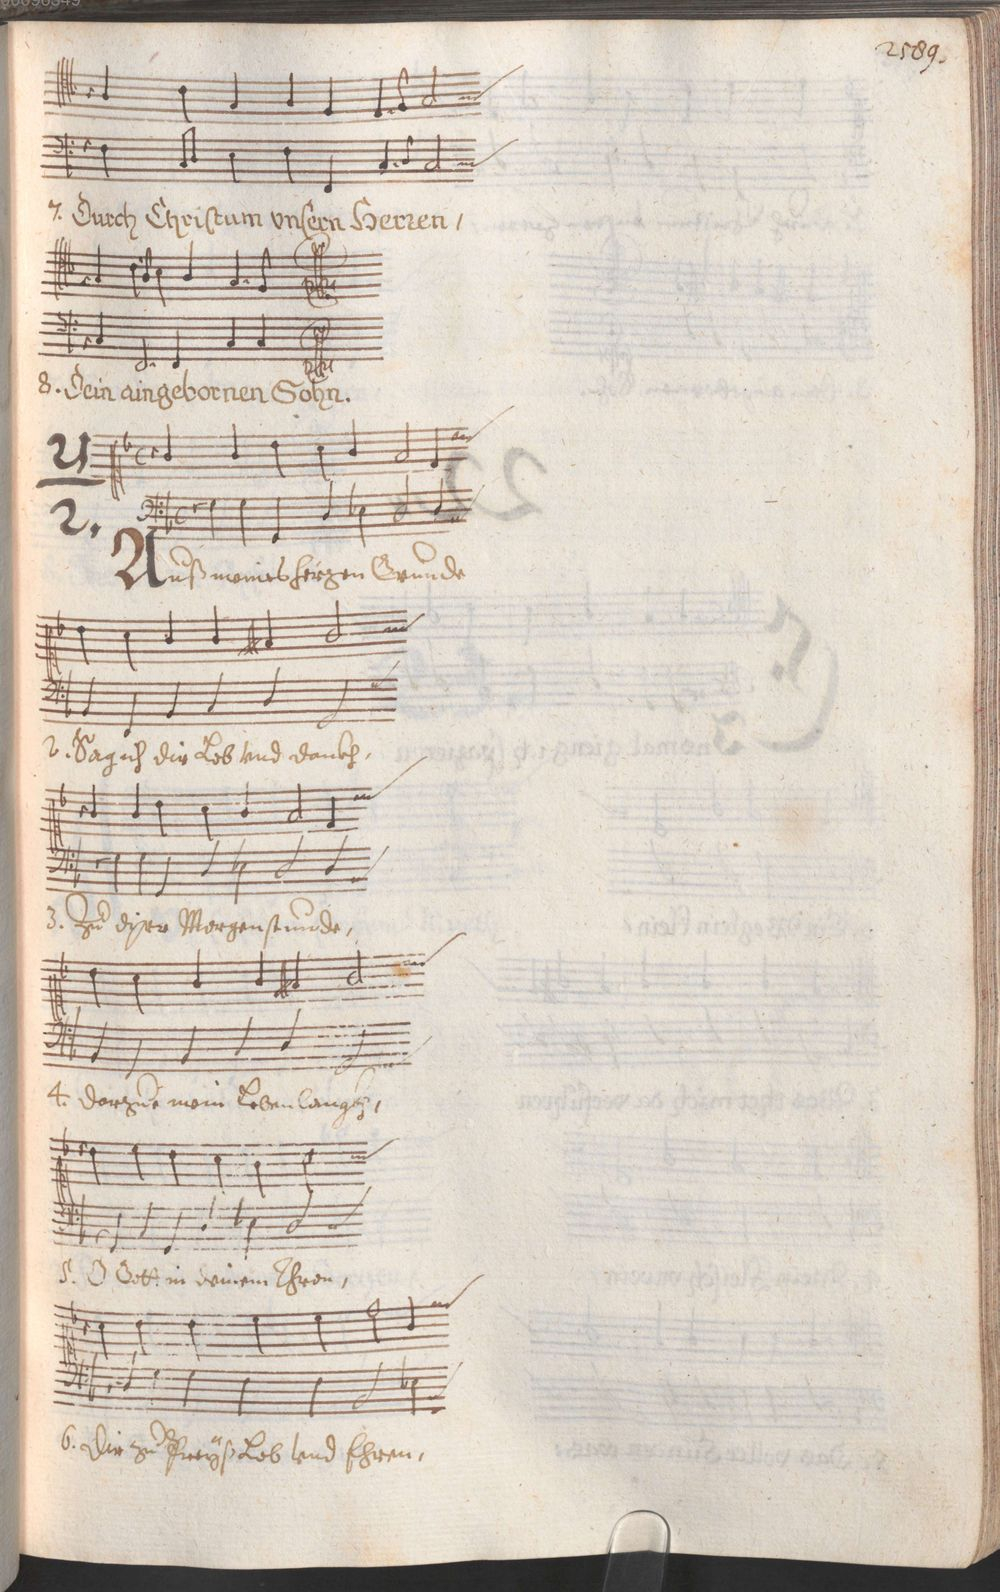 2589.
7. Durch Christum vnsern Herren,
8. Dein aingebornen Sohn.
21
2.
Auß meines herzen Grunde
2. Sag ich dir Lob vnd danckh,
3. Zu diser Morgenstunde,
4. darzue mein Leben langkh,
5. O Gott in deinem Thron,
6. Dir zu Preÿß Lob vnd Ehren,